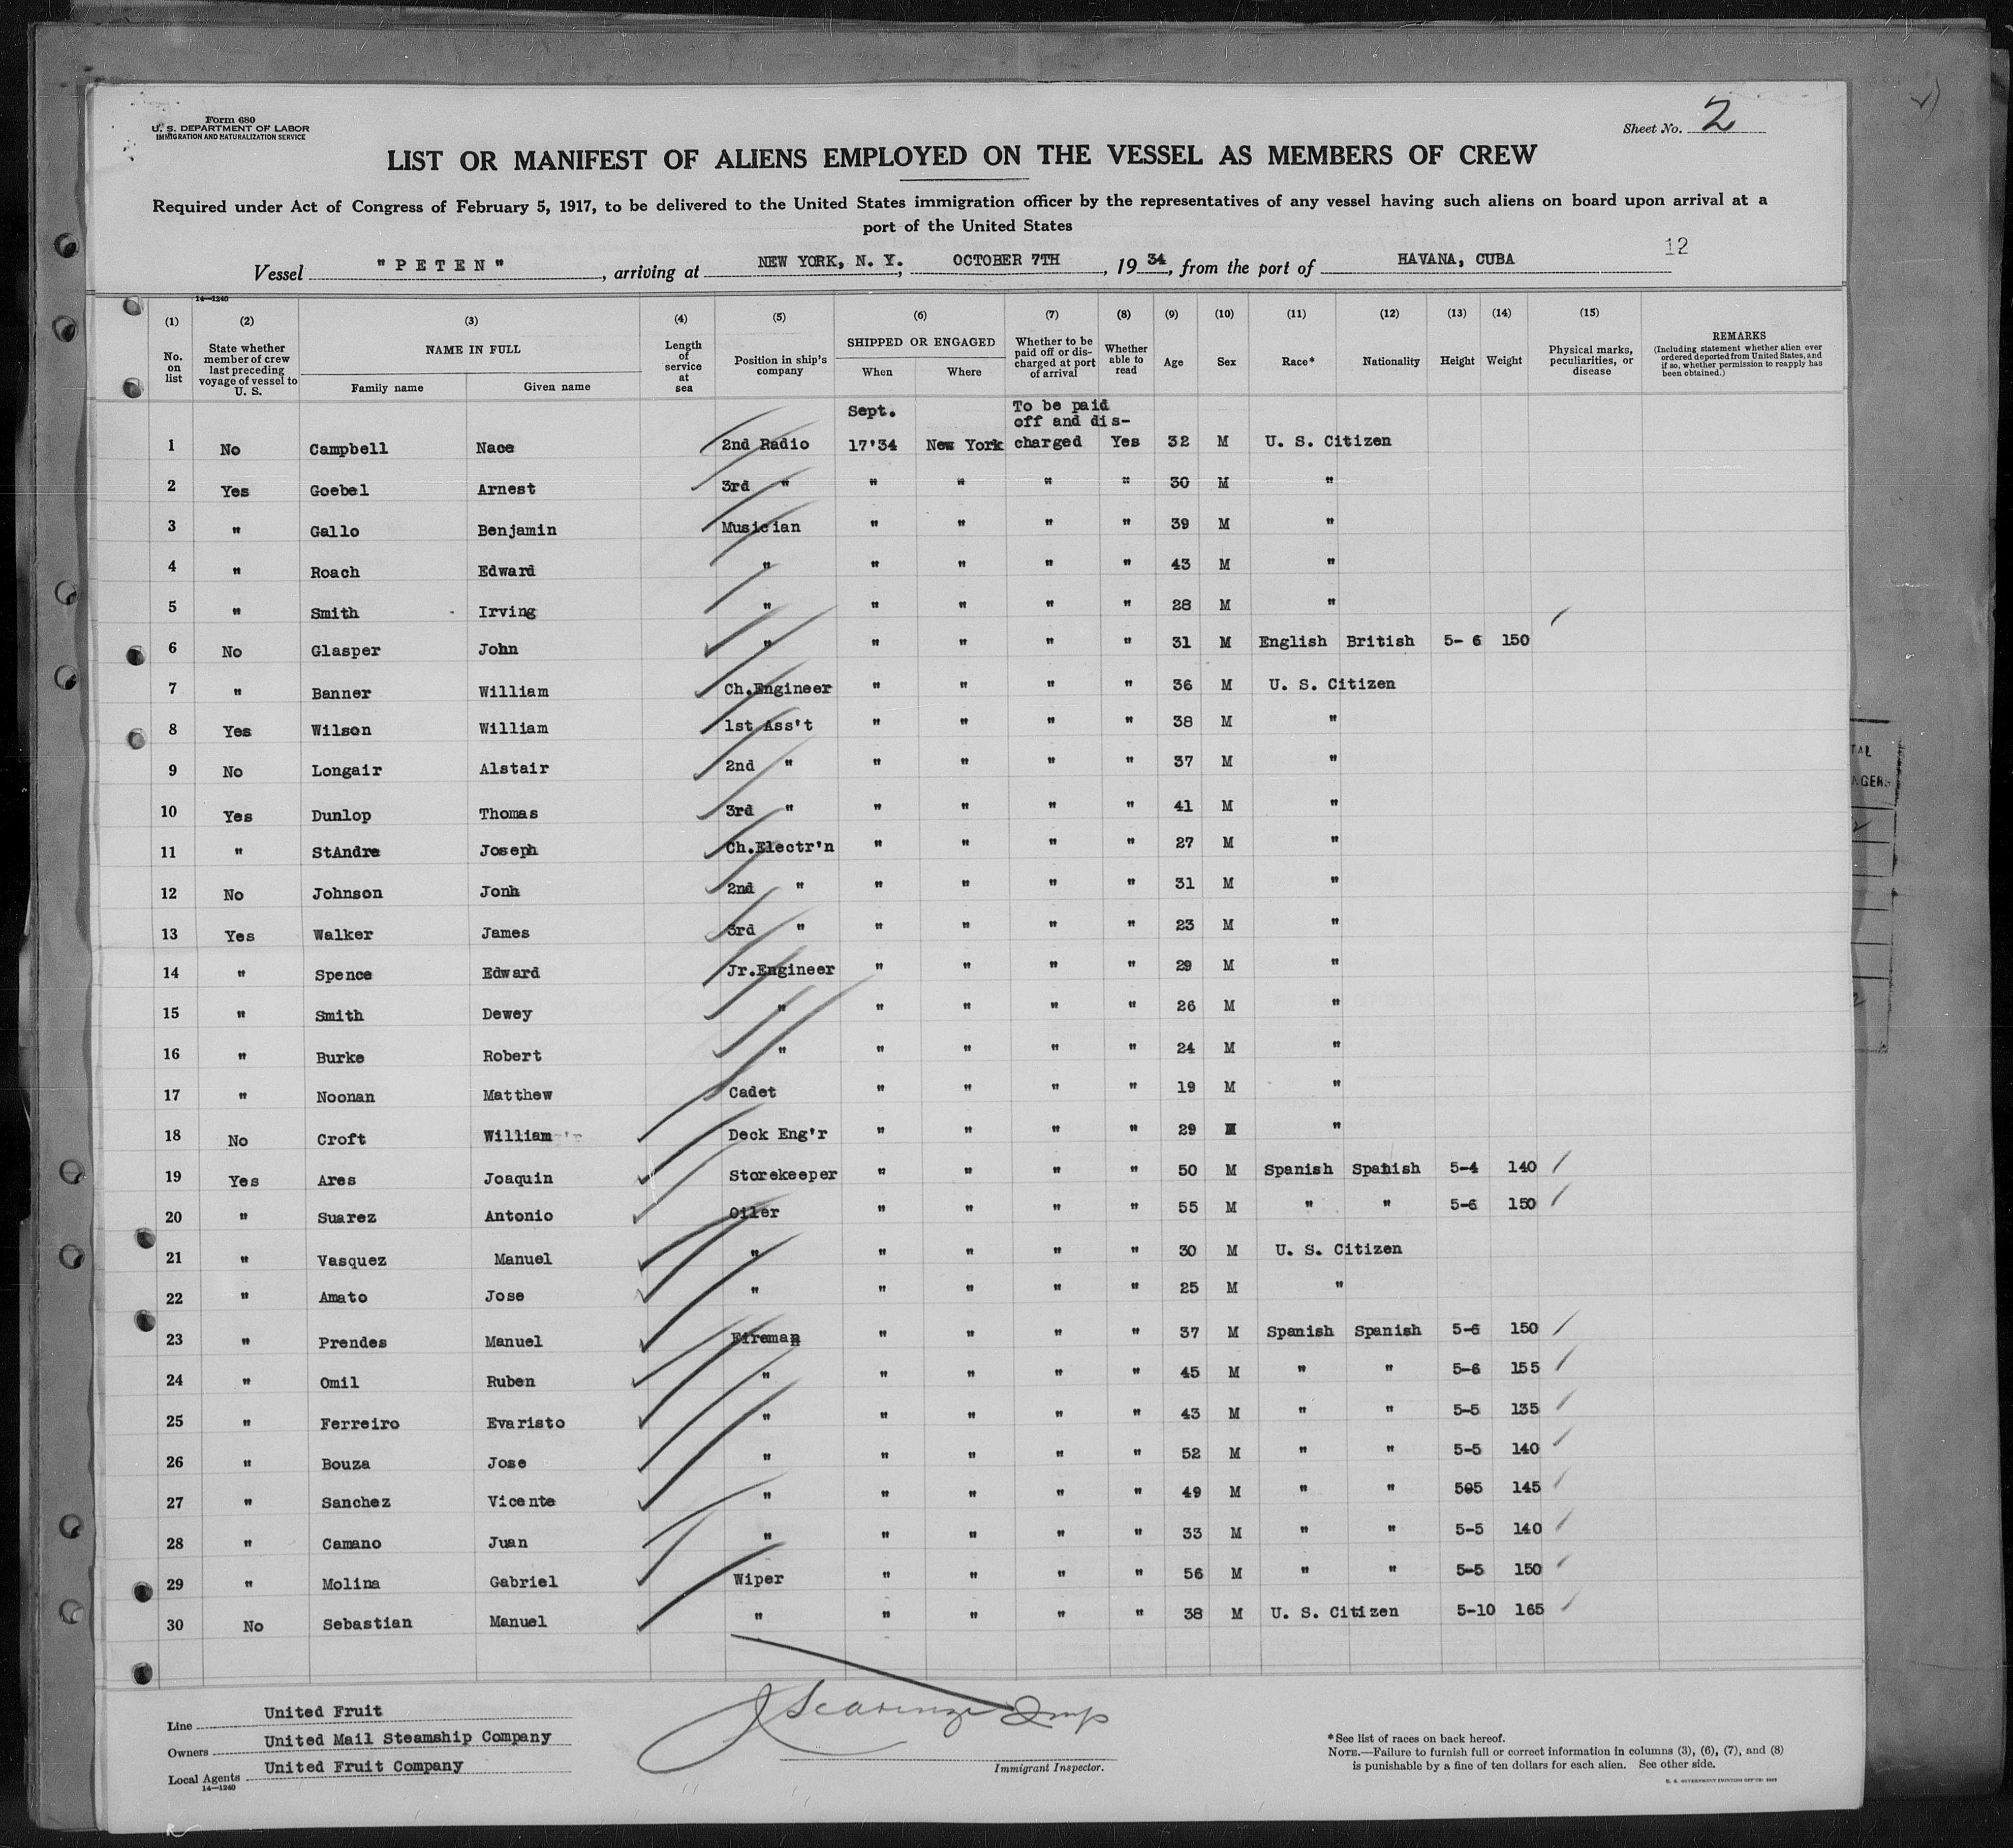 Form 680
U. S. DEPARTMENT OF LABOR
IMMIGRATION AND NATURALIZATION SERVICE
Sheet No. 2
LIST OR MANIFEST OF ALIENS EMPLOYED ON THE VESSEL AS MEMBERS OF CREW
Required under Act of Congress of February 5, 1917, to be delivered to the United States immigration officer by the representatives of any vessel having such aliens on board upon arrival at a
port of the United States
12
Vessel "PETEN", arriving at NEW YORK, N. Y., OCTOBER 7TH, 1934, from the port of HAVANA, CUBA
14—1240
(1) (2) (3) (4) (5) (6) (7) (8) (9) (10) (11) (12) (13) (14) (15)
No. on list
State whether member of crew last preceding voyage of vessel to U. S.
NAME IN FULL
Family name Given name
Length of service at sea
Position in ship's company
SHIPPED OR ENGAGED
When Where
Whether to be paid off or discharged at port of arrival
Whether able to read
Age
Sex
Race*
Nationality
Height
Weight
Physical marks, peculiarities, or disease
REMARKS
(Including statement whether alien ever ordered deported from United States, and if so, whether permission to reapply has been obtained.)
Sept. To be paid
off and dis-
1 No Campbell Nace 2nd Radio 17'34 New York charged Yes 32 M U. S. Citizen
2 Yes Goebel Arnest 3rd " " " " " 30 M "
3 " Gallo Benjamin Musician " " " " 39 M "
4 " Roach Edward " " " " " 43 M "
5 " Smith Irving " " " " " 28 M "
6 No Glasper John " " " " " 31 M English British 5- 6 150
7 " Banner William Ch.Engineer " " " " 36 M U. S. Citizen
8 Yes Wilson William 1st Ass't " " " " 38 M "
9 No Longair Alstair 2nd " " " " " 37 M "
10 Yes Dunlop Thomas 3rd " " " " " 41 M "
11 " StAndre Joseph Ch.Electr'n " " " " 27 M "
12 No Johnson Jonh 2nd " " " " " 31 M "
13 Yes Walker James 3rd " " " " " 23 M "
14 " Spence Edward Jr.Engineer " " " " 29 M "
15 " Smith Dewey " " " " " 26 M "
16 " Burke Robert " " " " " 24 M "
17 " Noonan Matthew Cadet " " " " 19 M "
18 No Croft William Deck Eng'r " " " " 29 M "
19 Yes Ares Joaquin Storekeeper " " " " 50 M Spanish Spanish 5-4 140
20 " Suarez Antonio Oiler " " " " 55 M " " 5-6 150
21 " Vasquez Manuel " " " " " 30 M U. S. Citizen
22 " Amato Jose " " " " " 25 M "
23 " Prendes Manuel Fireman " " " " 37 M Spanish Spanish 5-6 150
24 " Omil Ruben " " " " " 45 M " " 5-6 155
25 " Ferreiro Evaristo " " " " " 43 M " " 5-5 135
26 " Bouza Jose " " " " " 52 M " " 5-5 140
27 " Sanchez Vicente " " " " " 49 M " " 505 145
28 " Camano Juan " " " " " 33 M " " 5-5 140
29 " Molina Gabriel Wiper " " " " 56 M " " 5-5 150
30 No Sebastian Manuel " " " " " 38 M U. S. Citizen 5-10 165
Line United Fruit
Owners United Mail Steamship Company
Local Agents United Fruit Company
14—1240
Immigrant Inspector.
*See list of races on back hereof.
NOTE.—Failure to furnish full or correct information in columns (3), (6), (7), and (8)
is punishable by a fine of ten dollars for each alien. See other side.